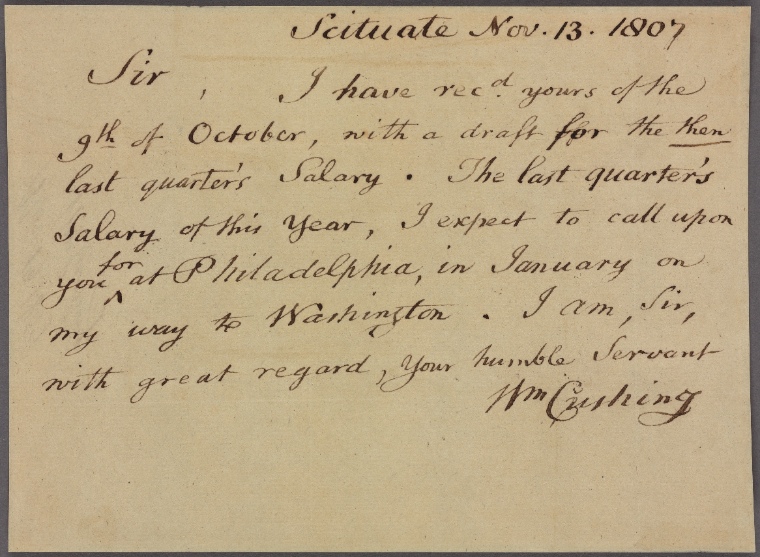 Scituate Nov. 13. 1807
Sir, I have recd. yours of the
9th of October, with a draft for the then
last quarter's Salary. The last quarter's
Salary of this Year, I expect to call upon
you for at Philadelphia, in January on
my way to Washington. I am, Sir,
with great regard, your humble Servant
Wm Cushing